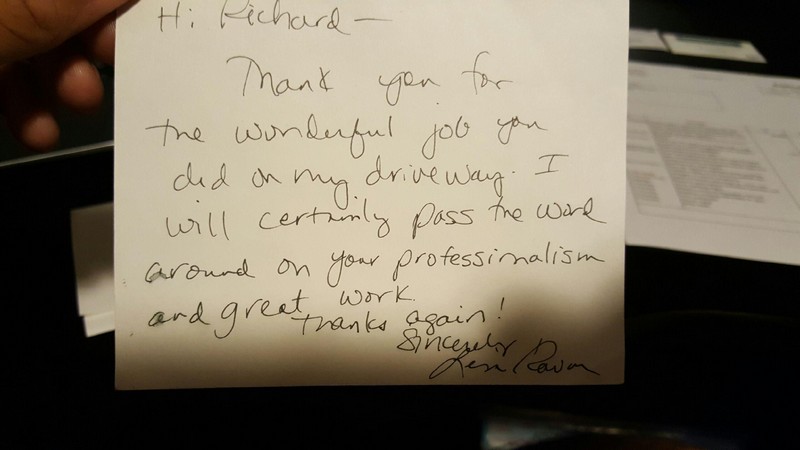 Hi Richard —
Thank you for
the wonderful job you
did on my driveway. I
will certainly pass the word
around on your professionalism
and great work.
Thanks again!
Sincerely